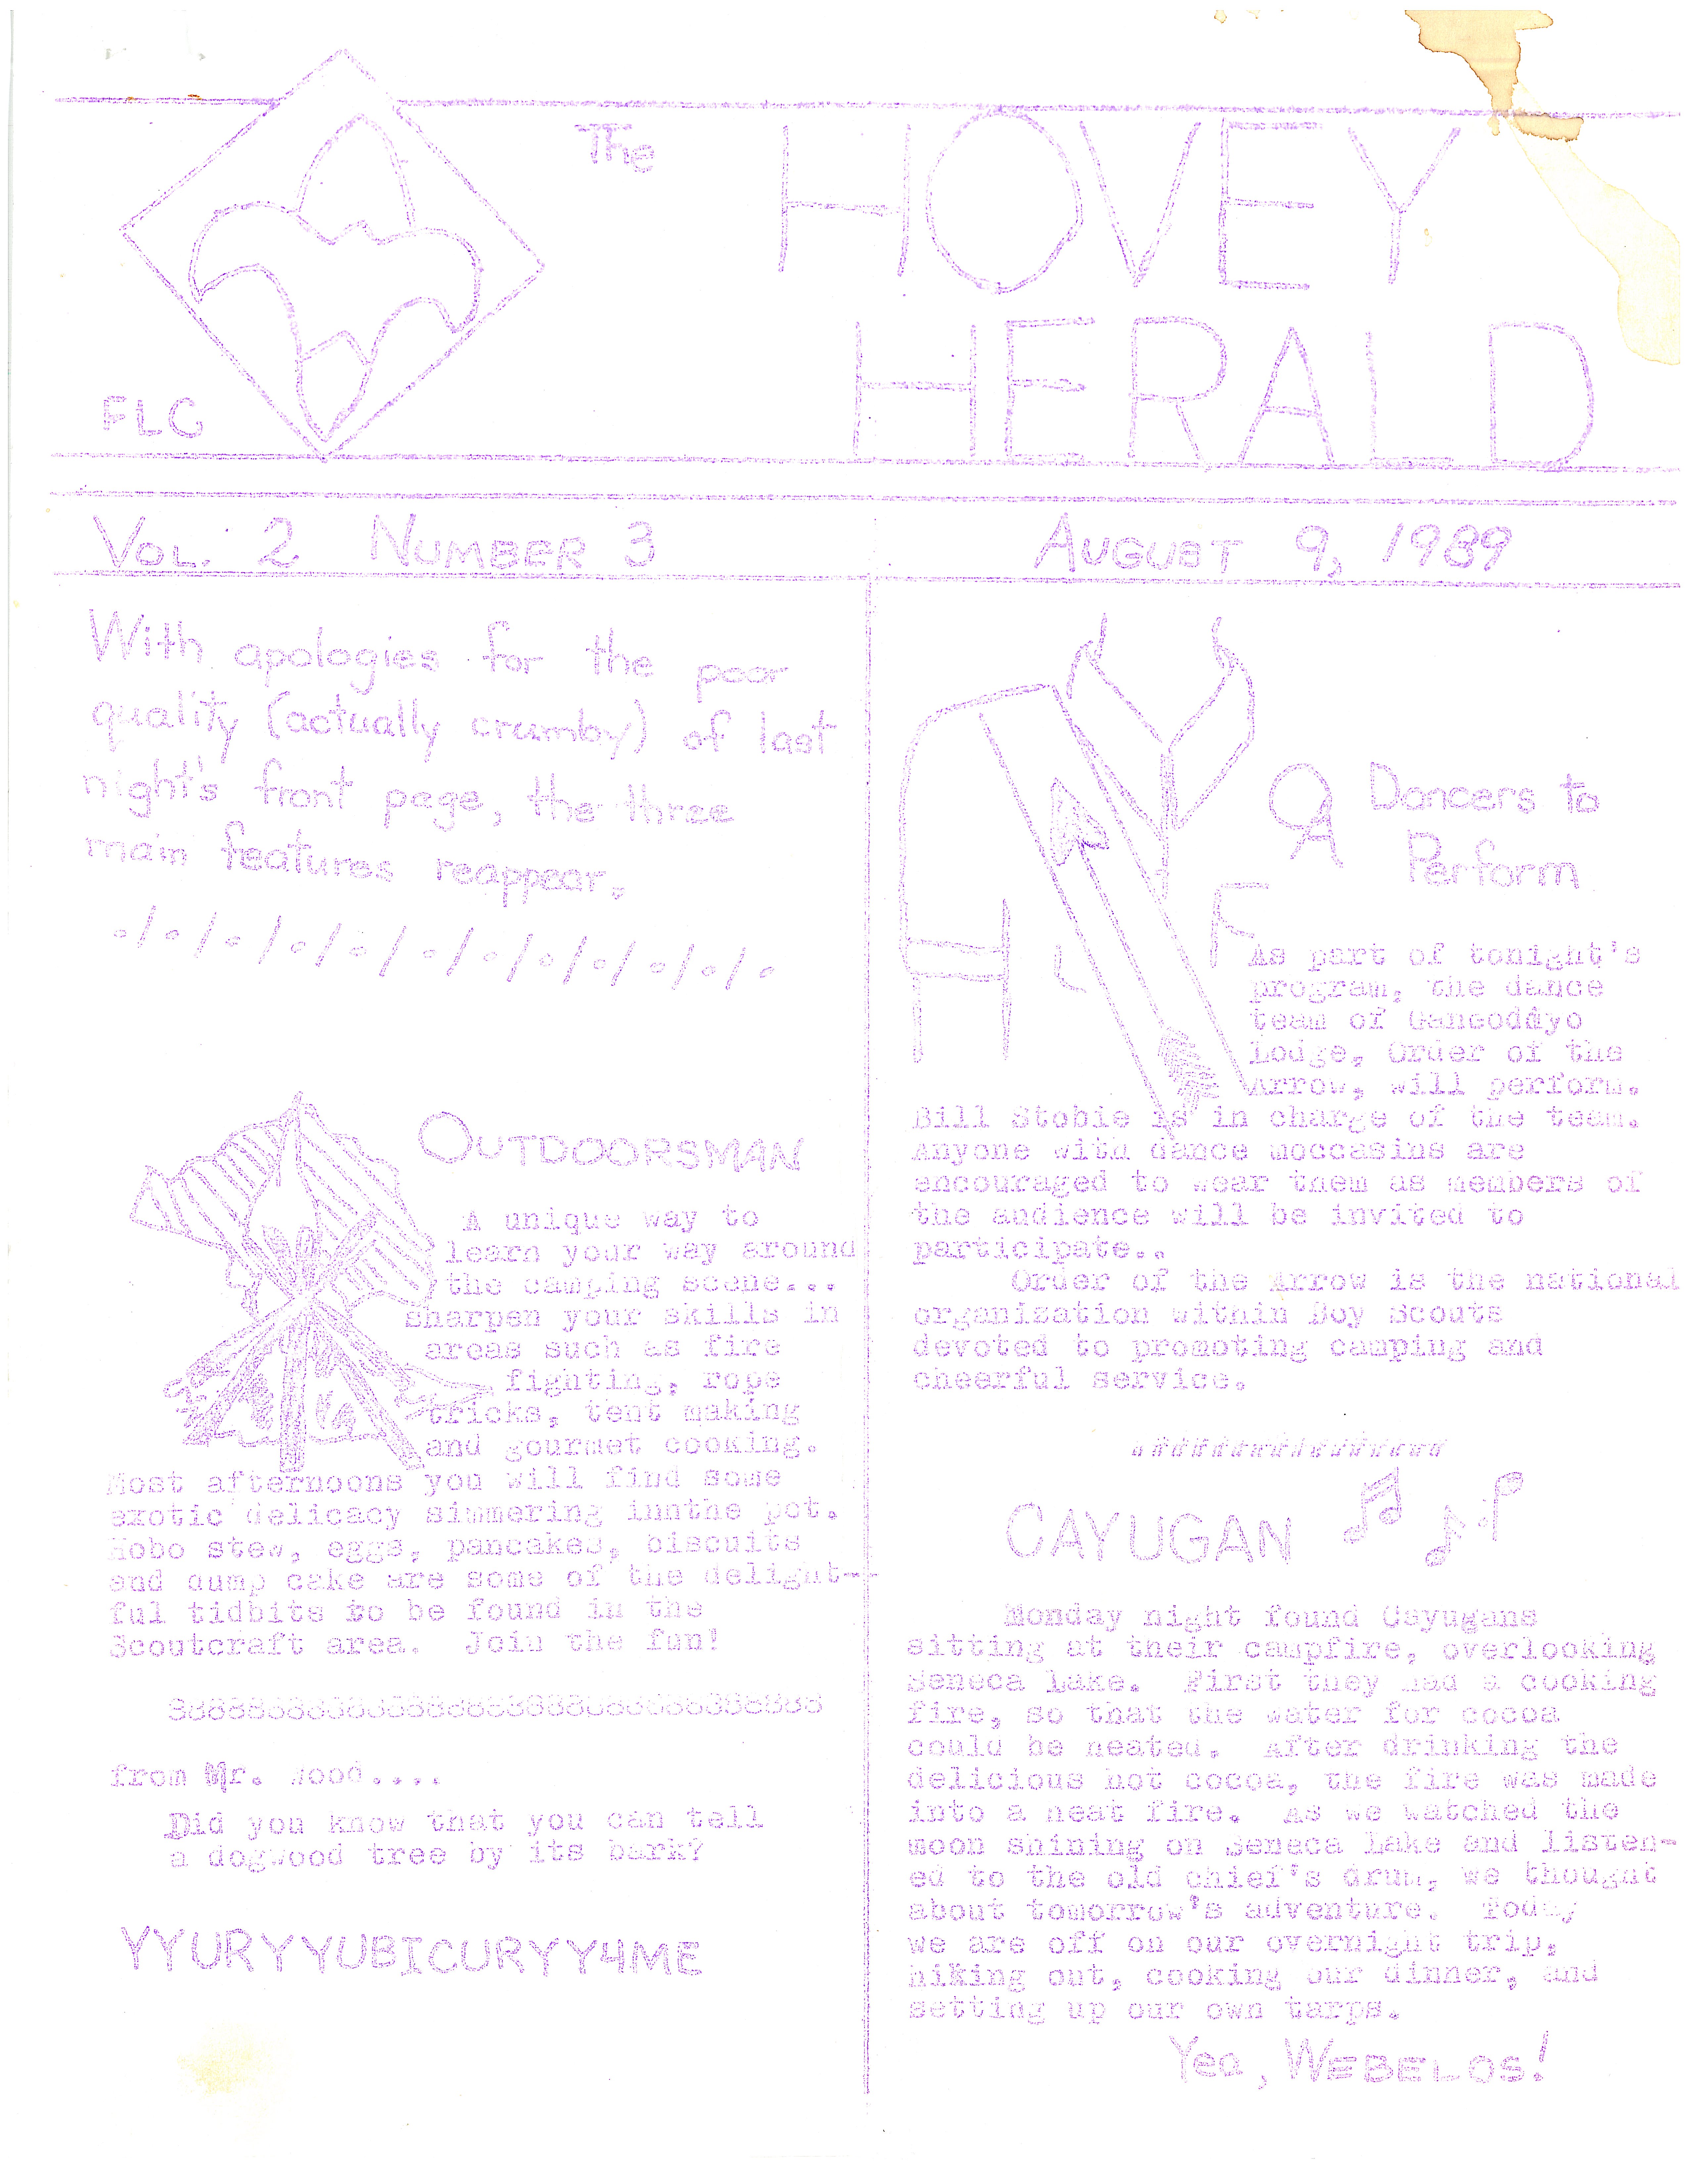 The HOVEY
HERALD
FLC
VOL. 2 NUMBER 3 AUGUST 9, 1989
With apologies for the poor
quality (actually crumby) of last
night's front page, the three
main features reappear.
OUTDOORSMAN
A unique way to
learn your way around
the camping scene...
sharpen your skills in
areas such as fire
fighting, rope
tricks, tent making
and gourmet cooking.
Most afternoons you will find some
exotic delicacy simmering innthe pot.
Hobo stew, eggs, pancakes, biscuits
and dump cake are some of the delight-
ful tidbits to be found in the
Scoutcraft area. Join the fun!
from Mr. Wood....
Did you know that you can tell
a dogwood tree by its bark?
YYURYYUBICURYY4ME
OA Dancers to
Perform
F
H L
As part of tonight's
program, the dance
team of
Lodge, Order of the
Arrow, will perform.
Bill Stobie is in charge of the team.
Anyone with dance moccasins are
encouraged to wear them as members of
the audience will be invited to
participate..
Order of the Arrow is the national
organization within Boy Scouts
devoted to promoting camping and
cheerful service.
CAYUGAN
Monday night found Cayugans
sitting at their campfire, overlooking
Seneca Lake. First they had a cooking
fire, so that the water for cocoa
could be heated. After drinking the
delicious hot cocoa, the fire was made
into a neat fire. As we watched the
moon shining on Seneca Lake and listen-
ed to the old chief's drum, we thought
about tomorrow's adventure. Today
we are off on our overnight trip,
hiking out, cooking our dinner, and
setting up our own tarps.
Yea, WEBELOS!